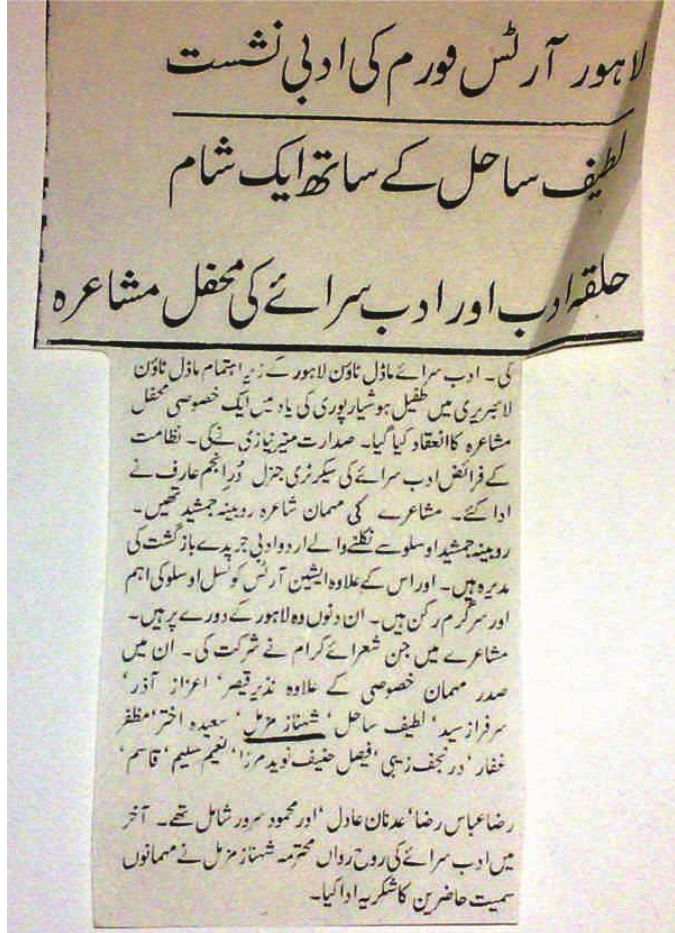 لاہور آرٹس فورم کی ادبی نشست
لطیف ساحل کے ساتھ ایک شام
حلقہ ادب اور ادب سرائے کی محفل مشاعرہ
کی۔ ادب سرائے ماڈل ٹاؤن لاہور کے زیر اہتمام ماڈل ٹاؤن
لائبریری میں طفیل ہوشیارپوری کی یاد میں ایک خصوصی محفل
مشاعرہ کا انعقاد کیا گیا۔ صدارت منیر نیازی نے کی۔ نظامت
کے فرائض ادب سرائے کی سیکرٹری جنرل دُر انجم عارف نے
ادا کئے۔ مشاعرے کی مہمان شاعرہ روبینہ جمشید تھیں۔
روبینہ جمشید اوسلو سے نکلنے والے اردو ادبی جریدے بازگشت کی
مدیرہ ہیں۔ اور اس کے علاوہ ایشین آرٹس کونسل اوسلو کی اہم
اور سرگرم رکن ہیں۔ ان دنوں وہ لاہور کے دورے پر ہیں۔
مشاعرے میں جن شعرائے کرام نے شرکت کی۔ ان میں
صدر مہمان خصوصی کے علاوہ نذیر قیصر‘ اعزاز آذر‘
سرفراز سید‘ لطیف ساحل‘ شہناز مزمل‘ سعیدہ اختر‘ مظفر
غفار‘ در نجف زیبی‘ فیصل حنیف‘ نوید مرزا‘ نعیم سلیم‘ قاسم‘
رضا عباس رضا‘ عدنان عادل‘ اور محمود سرور شامل تھے۔ آخر
میں ادب سرائے کی روح رواں محترمہ شہناز مزمل نے مہمانوں
سمیت حاضرین کا شکریہ ادا کیا۔